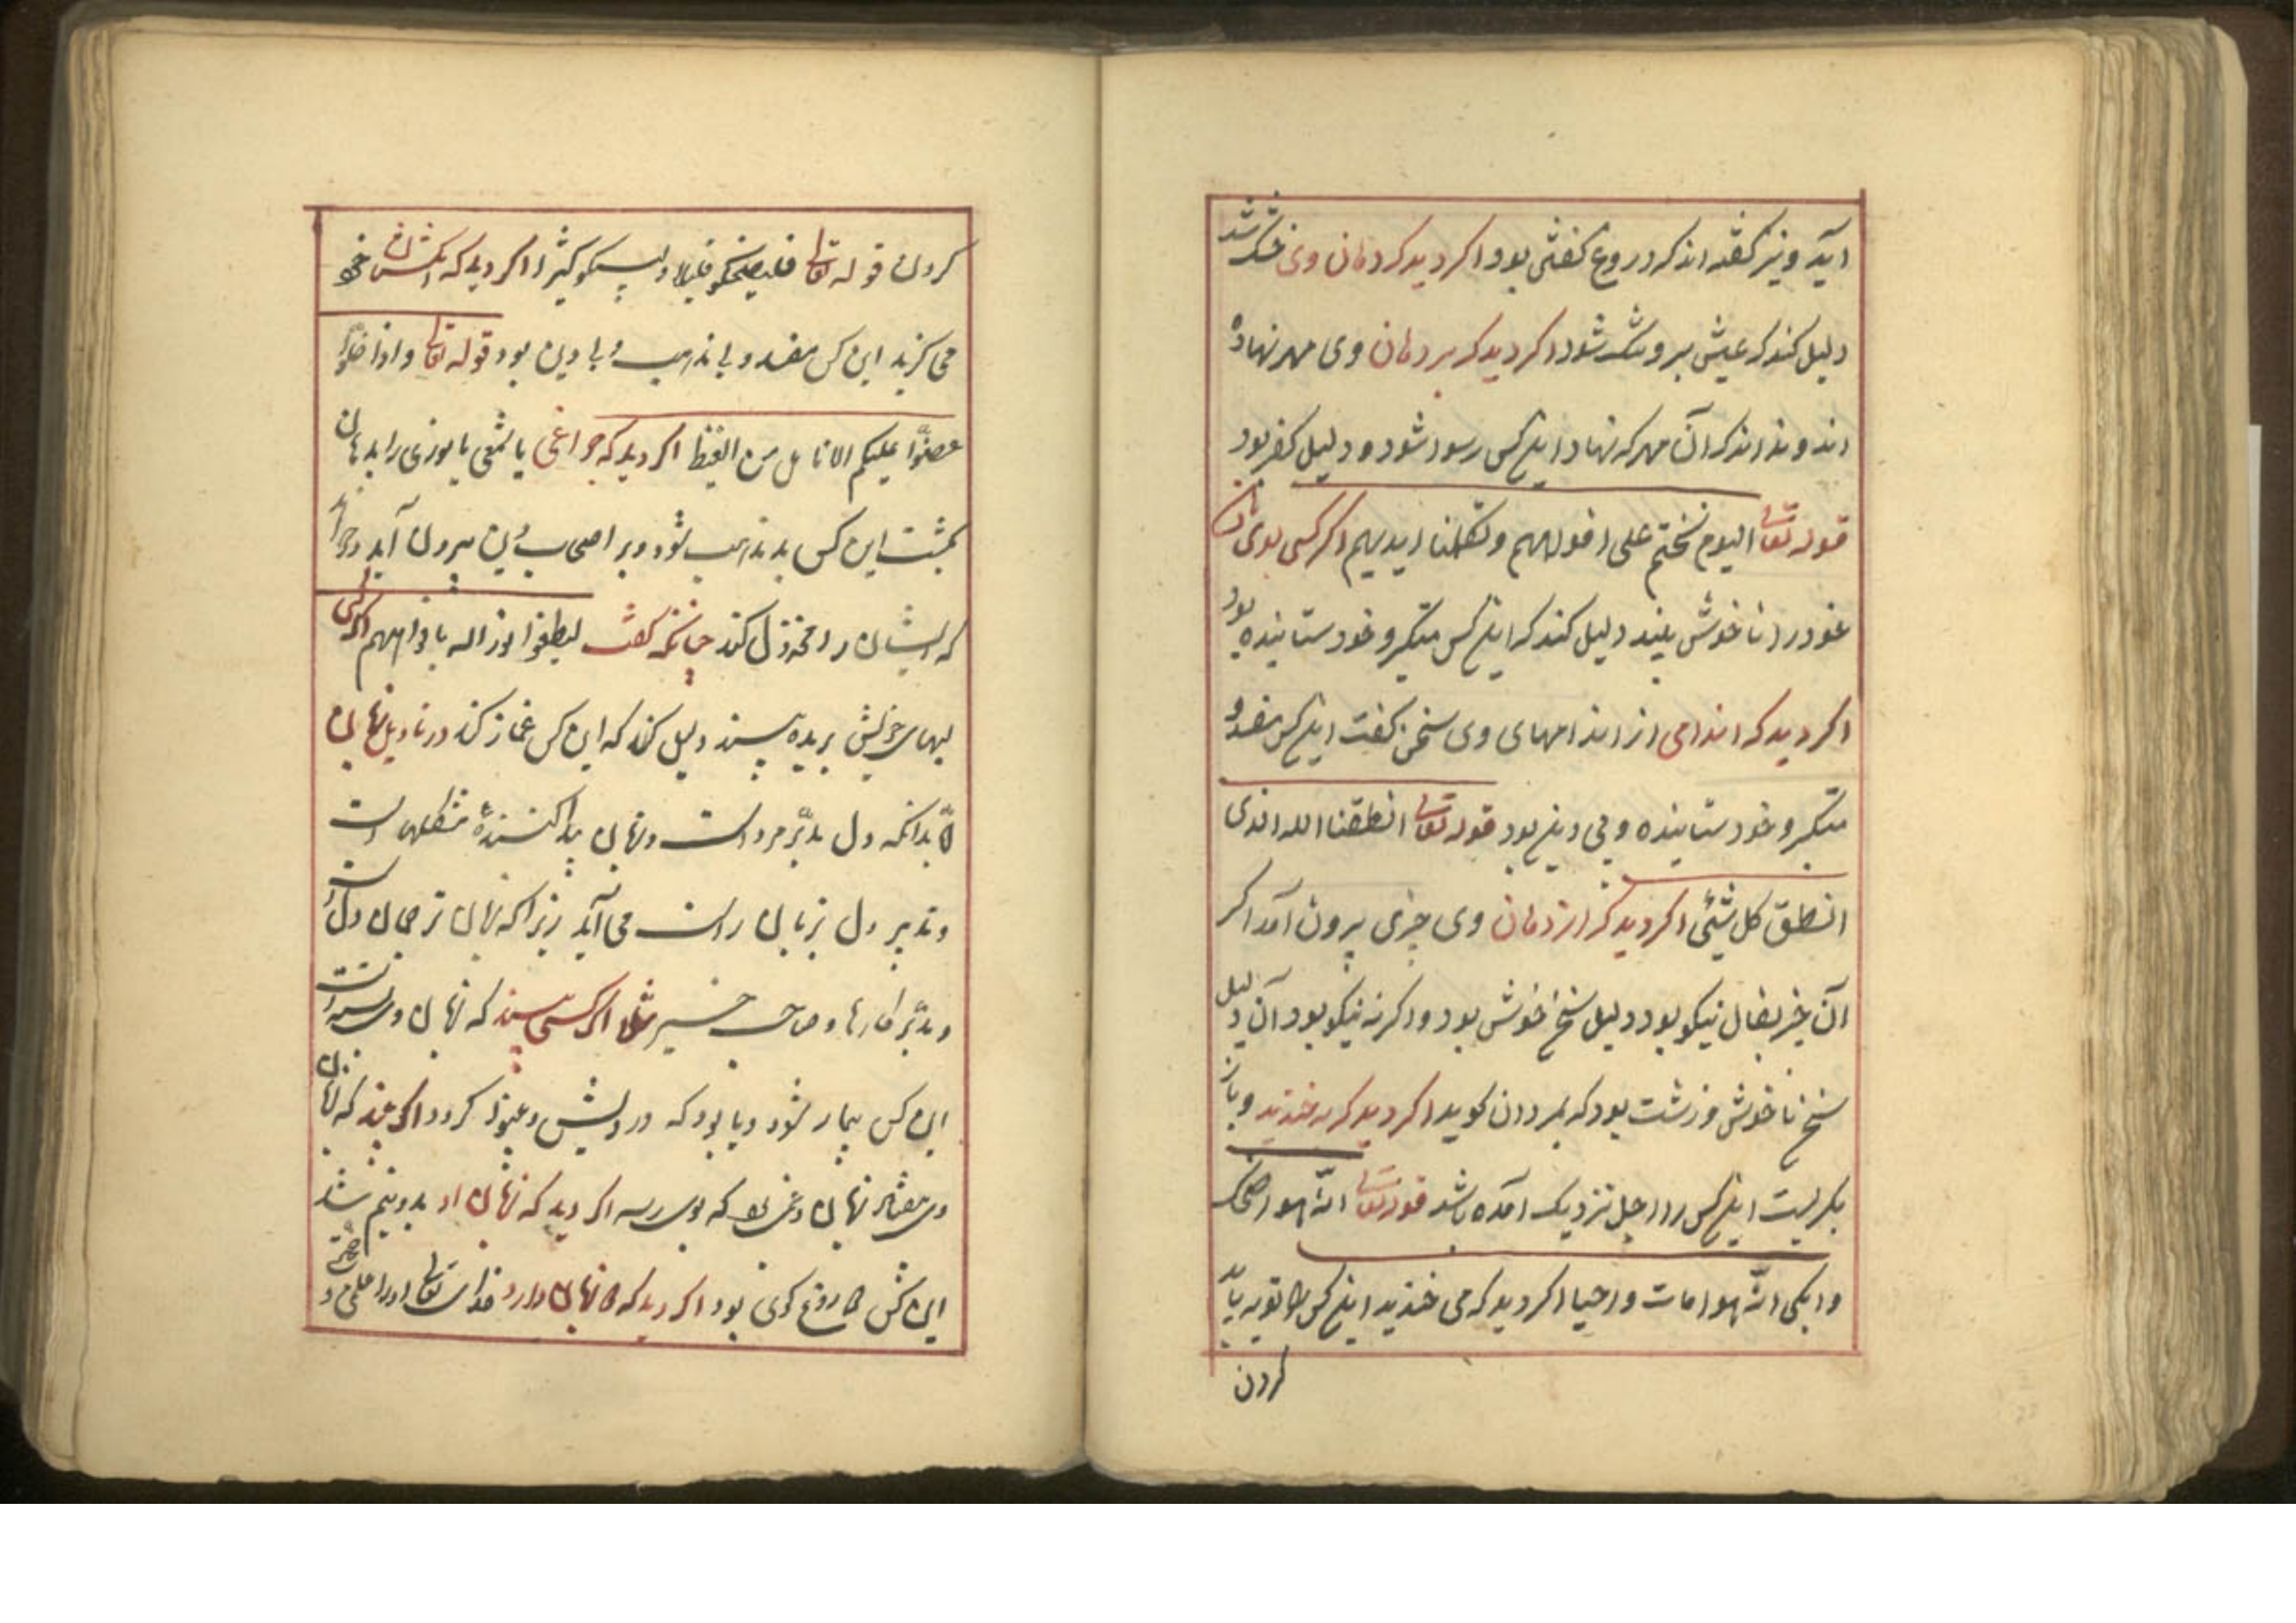 آید و نیز کفته اند که دروغ کفتنی بود اکر دید که دهان وی خشک شد
دلیل کند که عیش بر وی تنک شود اکر دید که بر دهان وی مهر نهاده
اند و نداند که آن مهر که نهاد اینکس رسوا شود و دلیل کفر بود
قوله تعالی الیوم نختم علی افواههم و تکلمنا ایدیهم اکر کسی بوی دهان
خود را ناخوش بیند دلیل کند که اینکس متکبر و خودستاینده بود
اکر دید که اندامی از اندامهای وی سخن کفت اینکس مفسد و
متکبر و خودستاینده و بی دین بود قوله تعالی انطقنا الله الذی
انطق کل شیئ اکر دید که از دهان وی چیزی بیرون آمد اکر
آن چیز بفال نیکو بود دلیل سخن خوش بود و اکر نه نیکو بود آن دلیل
سخن ناخوش و زشت بود که بمردان کوید اکر دید که می خندید و باز
بکریست اینکس را اجل نزدیک آمده باشد قوله تعالی انّه هو اضحک
و ابکی انّه هو امات و احیا اکر دید که می خندید اینکس را توبه باید
کردن
کردن قوله تعالی فلیضحکوا قلیلا ولیبکوا کثیرا اکر دید که انکشتان خود
می کزید این کس مفسد و بد مذهب و با دین بود قوله تعالی و اذا خلوا
عضّوا علیکم الانامل من الغیظ اکر دید که چراغی یا شمعی یا نوری را بدهان
بکشت این کس بد مذهب شود و بر اصحاب دین بیرون آید و خواهد
که ایشان را مخذول کند چنانکه کفت لیطفوا نور الله بافواههم اکر کسی
لبهای خویش بریده بیند دلیل کند که این کس غمازی کند در تاویل زبان
بدانکه دل مدبّر مرد است و زبان پیدا کننده مشکلها است
و تدبیر دل بزبان راست می آید زیرا که زبان ترجمان دل است
و مدبّر کارها و صاحب خبر مثلا اکر کسی بیند که زبان وی بسته است
این کس بیمار شود و یا بود که درویش و عیبناک کردد اکر بیند که زبان
این کس دروغ کوی بود اکر دید که دو زبان دارد خدای تعالی او را علمی دهد